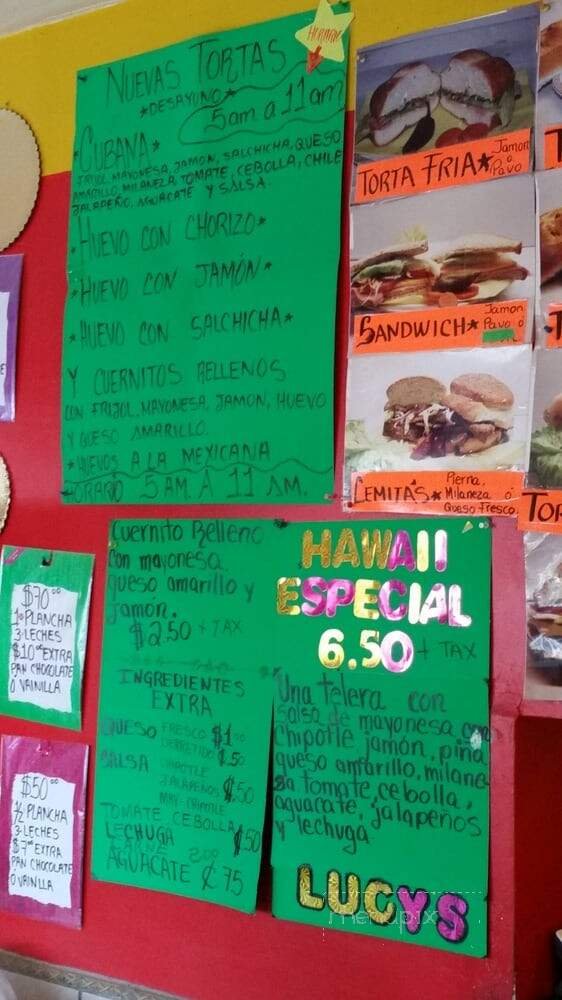 NUEVAS TORTAS
*DESAYUNO*
5am a 11am
*CUBANA*
FRIJOL, MAYONESA, JAMON, SALCHICHA, QUESO
AMARILLO, MILANEZA, TOMATE, CEBOLLA, CHILE
JALAPEÑO, AGUACATE Y SALSA.
*HUEVO CON CHORIZO*
*HUEVO CON JAMÓN*
*HUEVO CON SALCHICHA*
Y CUERNITOS RELLENOS
CON FRIJOL, MAYONESA, JAMON, HUEVO
Y QUESO AMARILLO.
*HUEVOS A LA MEXICANA
HORARIO 5 AM A 11 AM.
TORTA FRIA*
Jamon
o
Pavo
SANDWICH*
Jamon
Pavo ó
CEMITAS*
Pierna,
Milaneza ó
Queso Fresco.
TOR
Cuernito Relleno
con mayonesa,
queso amarillo y
jamón.
$2.50 + TAX
INGREDIENTES
EXTRA
QUESO FRESCO $1.00
DERRETIDO $.50
SALSA CHIPOTLE
JALAPEÑOS ¢.50
MAY-CHIPOTLE
TOMATE CEBOLLA
LECHUGA ¢.50
CARNE 2.00
AGUACATE ¢ 75
HAWAII
ESPECIAL
6.50 + TAX
Una telera con
salsa de mayonesa con
chipotle, jamón, piña,
queso amarillo, milane
za tomate, cebolla,
aguacate, jalapeños
y lechuga.
LUCYS
menupix
$70.00
1 PLANCHA
3-LECHES
$10.00 EXTRA
PAN CHOCOLATE
O VAINILLA
$50.00
1/2 PLANCHA
3-LECHES
$7.00 EXTRA
PAN CHOCOLATE
O VAINILLA